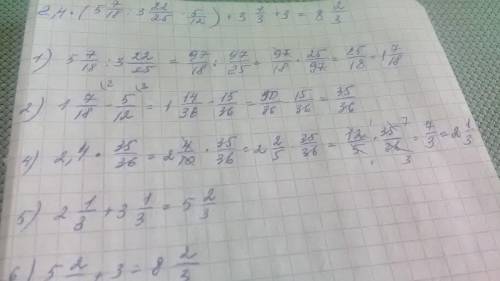 2,4 · (5 7/18 : 3 22/25 - 5/12) + 3 1/3 + 3 = 8 2/3
1) 5 7/18 : 3 22/25 = 97/18 : 97/25 = 97/18 · 25/97 = 25/18 = 1 7/18
2) 1 7/18 (2 - 5/12 (3 = 1 14/36 - 15/36 = 50/36 - 15/36 = 35/36
4) 2,4 · 35/36 = 2 4/10 · 35/36 = 2 2/5 · 35/36 = 12/5 · 35/36 = 7/3 = 2 1/3
5) 2 1/3 + 3 1/3 = 5 2/3
6) 5 2/ + 3 = 8 2/3